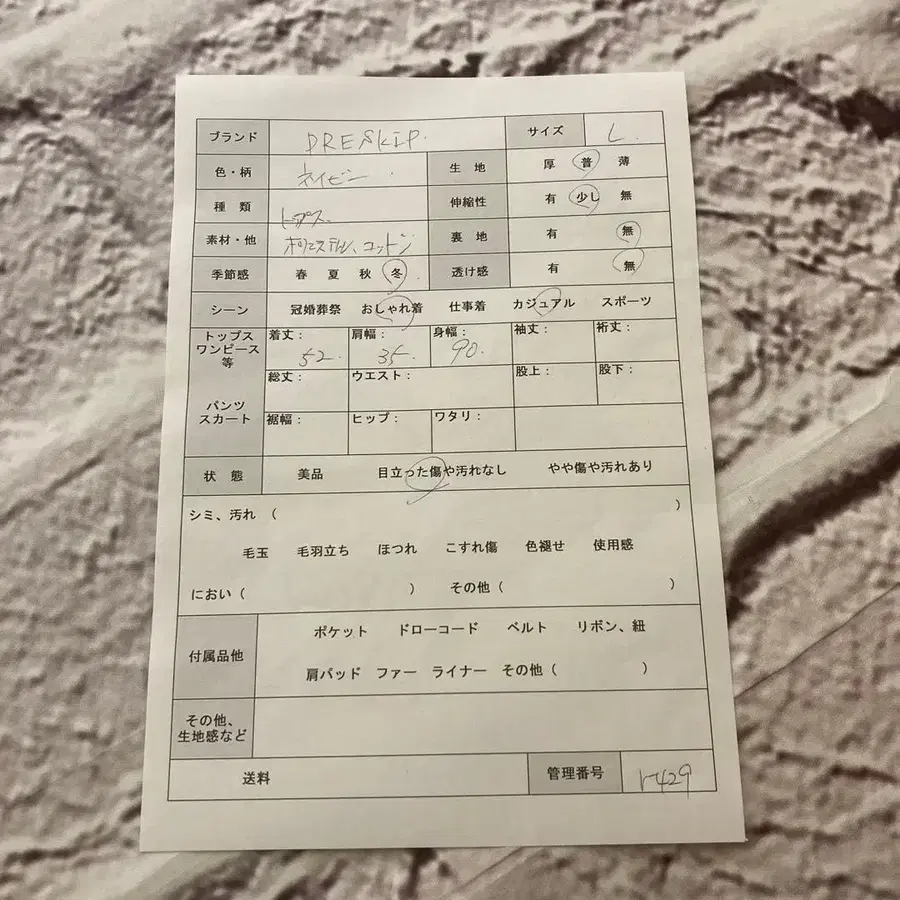 ブランド DRESKIP. サイズ L.
色・柄 ネイビー 生 地 厚 普 薄
種 類 トップス 伸縮性 有 少し 無
素材・他 ポリエステル、コットン 裏 地 有 無
季節感 春 夏 秋 冬 透け感 有 無
シーン 冠婚葬祭 おしゃれ着 仕事着 カジュアル スポーツ
トップス ワンピース 等 着丈： 52. 肩幅： 35. 身幅： 90. 袖丈： 裄丈：
総丈： ウエスト： 股上： 股下：
パンツ スカート 裾幅： ヒップ： ワタリ：
状 態 美品 目立った傷や汚れなし やや傷や汚れあり
シミ、汚れ （ ）
毛玉 毛羽立ち ほつれ こすれ傷 色褪せ 使用感
におい（ ） その他（ ）
付属品他 ポケット ドローコード ベルト リボン、紐
肩パッド ファー ライナー その他（ ）
その他、
生地感など
送料 管理番号 r429